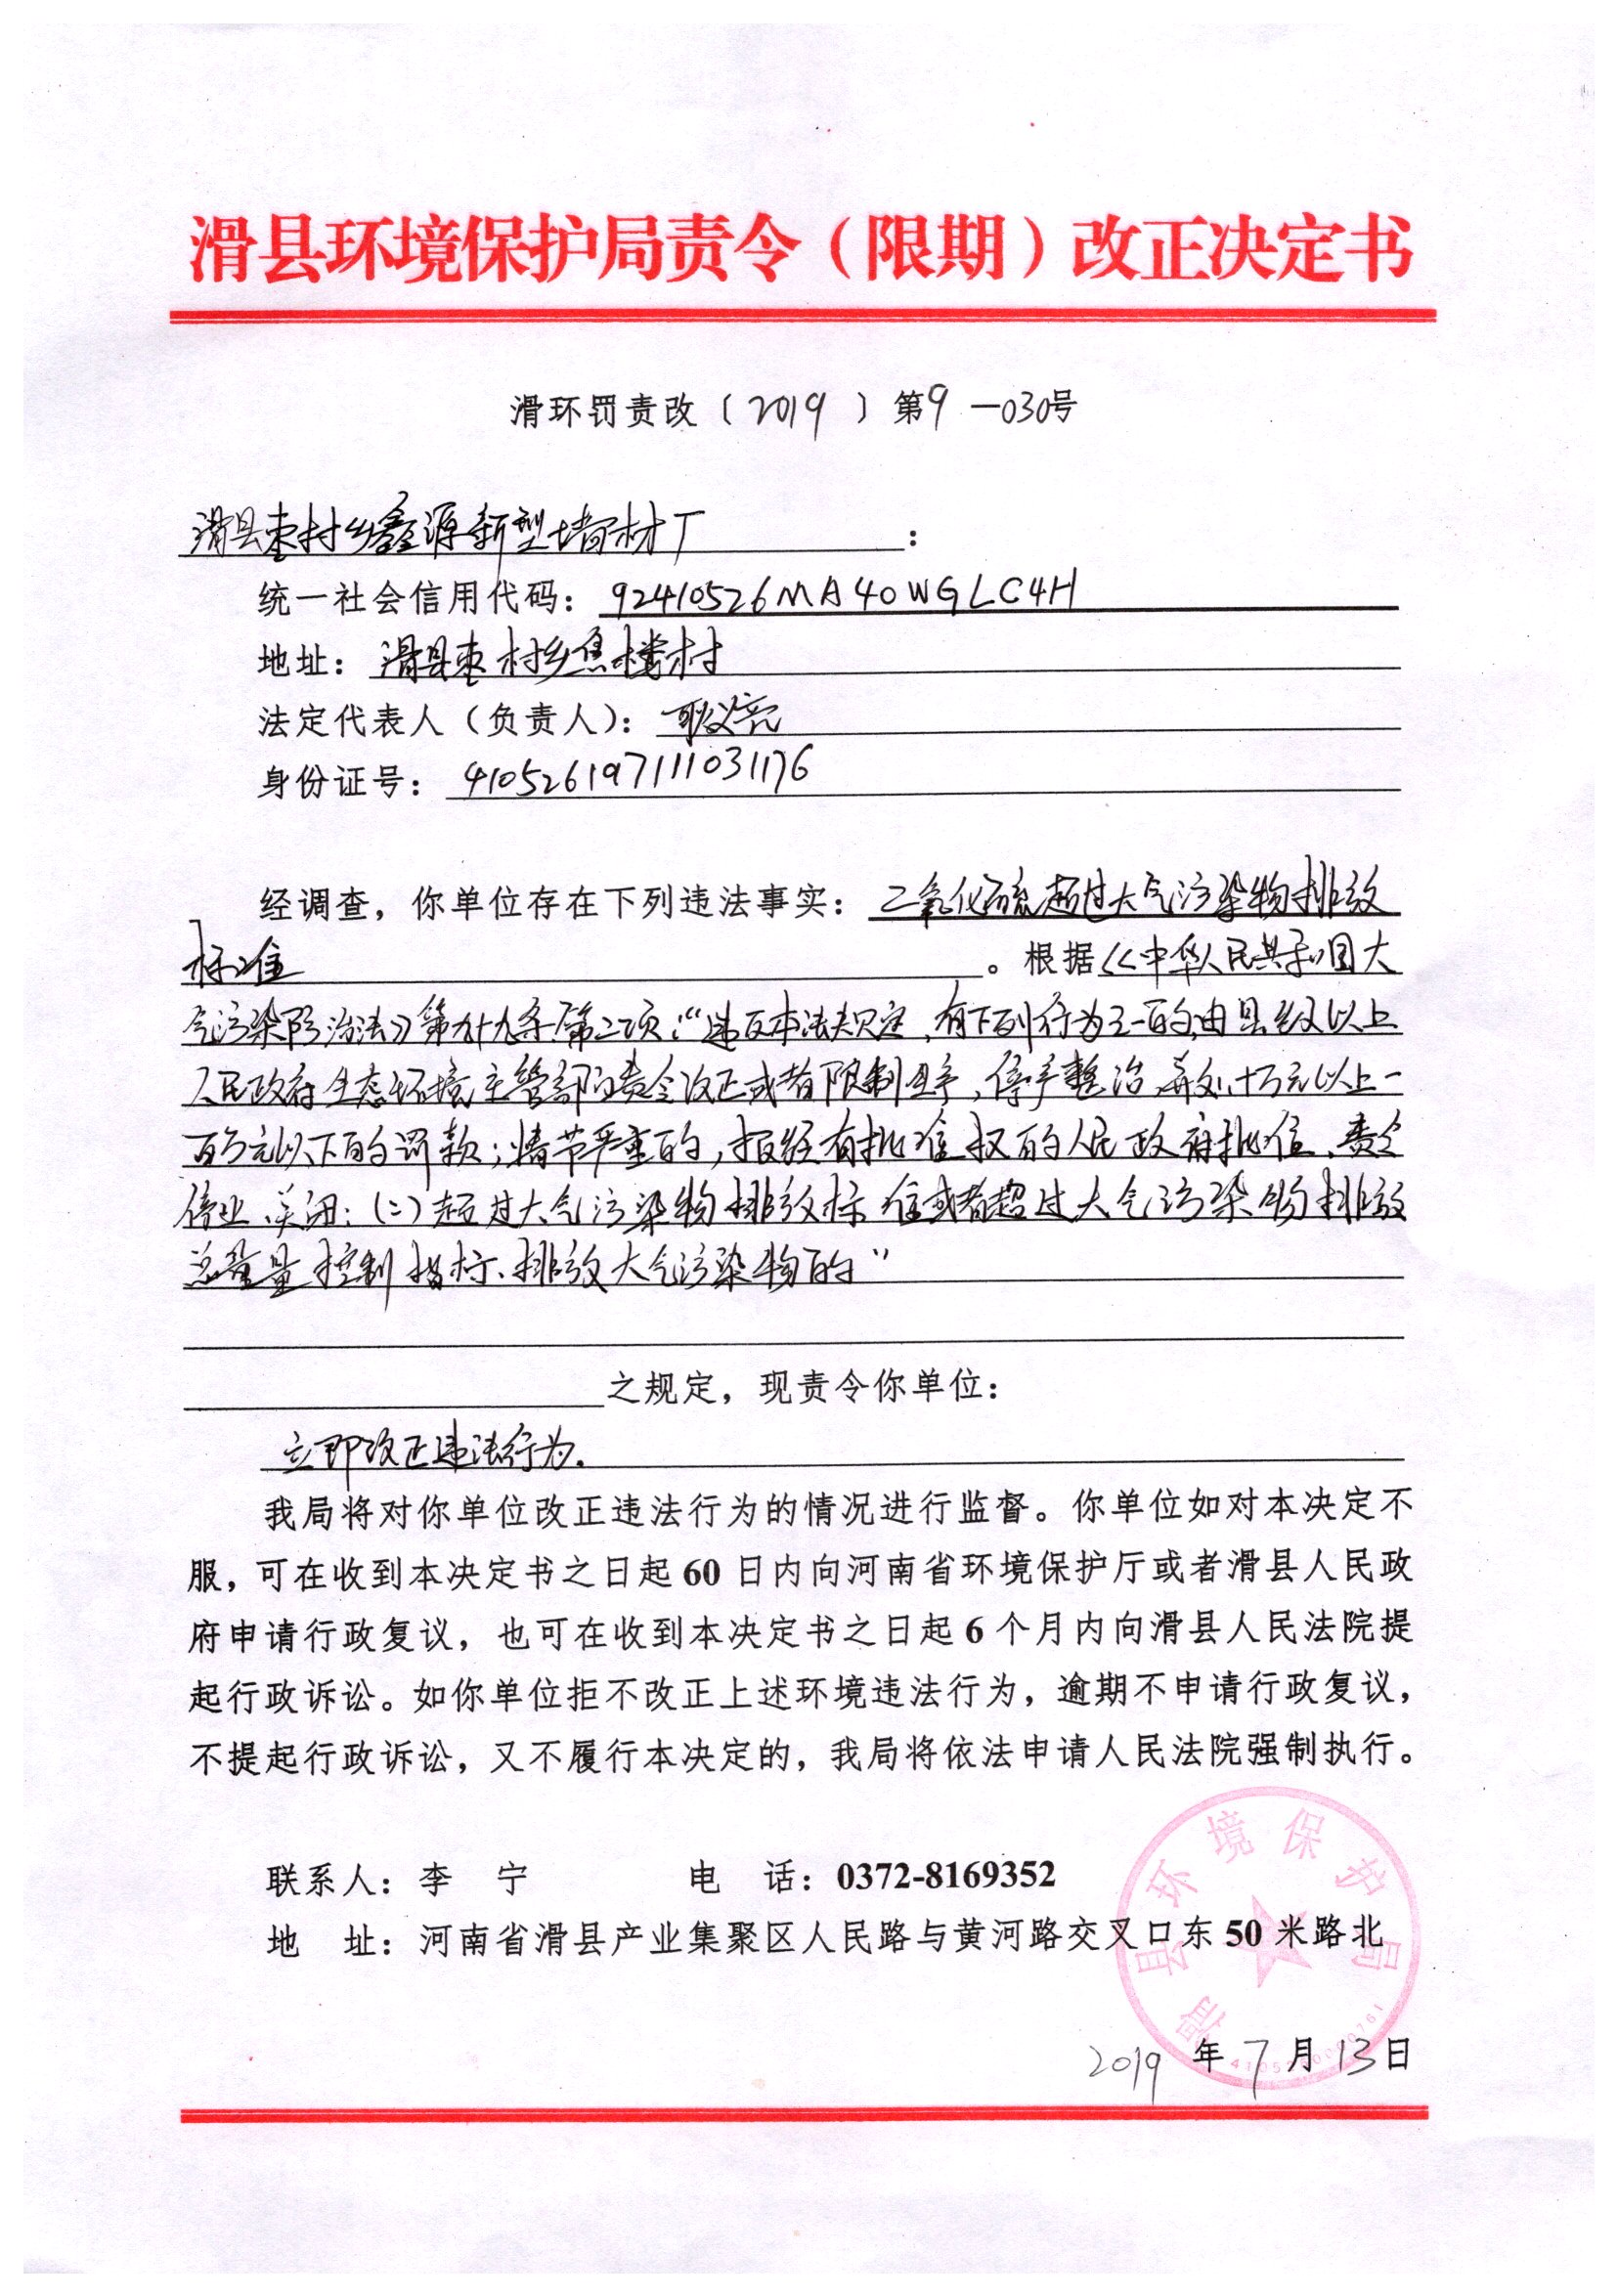 滑县环境保护局责令（限期）改正决定书
滑环罚责改〔2019〕第9-030号
滑县枣村乡鑫源新型墙材厂：
统一社会信用代码：92410526MA40WGLC4H
地址：滑县枣村乡焦楼村
法定代表人（负责人）：耿义亮
身份证号：410526197111031176
经调查，你单位存在下列违法事实：二氧化硫超过大气污染物排放
标准。根据《中华人民共和国大
气污染防治法》第九十九条第二项：“违反本法规定，有下列行为之一的，由县级以上
人民政府生态环境主管部门责令改正或者限制生产、停产整治，并处十万元以上一
百万元以下的罚款；情节严重的，报经有批准权的人民政府批准，责令
停业、关闭：（二）超过大气污染物排放标准或者超过大气污染物排放
总量控制指标、排放大气污染物的”
之规定，现责令你单位：
立即改正违法行为.
我局将对你单位改正违法行为的情况进行监督。你单位如对本决定不
服，可在收到本决定书之日起60日内向河南省环境保护厅或者滑县人民政
府申请行政复议，也可在收到本决定书之日起6个月内向滑县人民法院提
起行政诉讼。如你单位拒不改正上述环境违法行为，逾期不申请行政复议，
不提起行政诉讼，又不履行本决定的，我局将依法申请人民法院强制执行。
联系人：李 宁 电 话：0372-8169352
地 址：河南省滑县产业集聚区人民路与黄河路交叉口东50米路北
滑县环境保护局
2019年7月13日